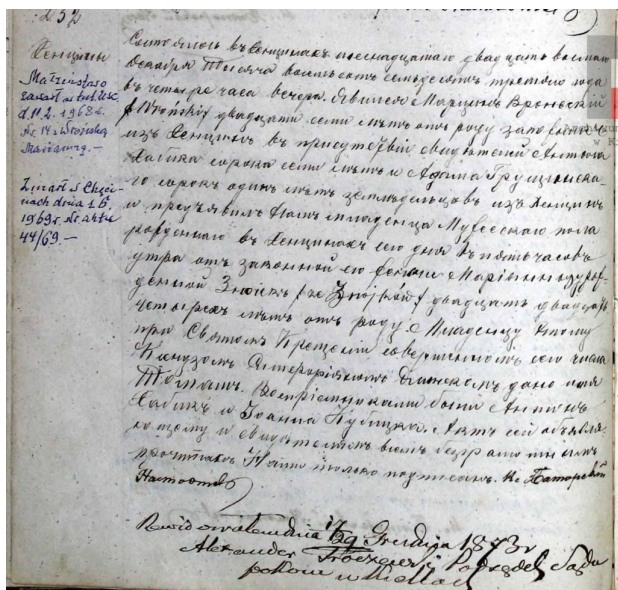 252
Хенцины
Małżeństwo
zawarł
d. 11.2. 1963 r.
Nr 14 z Wrońską
Marianną.-
Zmarł w Chęci-
nach dnia 1.6.
1969 r. Nr aktu
44/69.-
Состоялось въ Хенцинахъ двадцать восьмаго
Декабря Тысяча восемьсотъ семьдесятъ третьяго года
въ четыре часа вечера. Явился Марцинъ Вроньскій
/Wroński/ двадцати семи лѣтъ отъ роду
изъ Хенцинъ въ присутствіи свидѣтелей Антона
Хабика сорока семи лѣтъ и Адама Грущинска-
го сорокъ одинъ лѣтъ земледѣльцовъ изъ Хенцинъ
и предъявилъ Намъ младенца Мужескаго пола
рожденнаго въ Хенцинахъ сего дня въ пять часовъ
утра отъ законной его жены Маріанны урож-
денной двадцать
четырехъ лѣтъ отъ роду. Младенцу этому
при Святомъ Крещеніи совершенномъ сего числа
Ксендзомъ дано имя
Томашъ. Воспріемниками были Антонъ
Хабикъ и Іоанна Кубицка. Актъ сей объявля-
ющему и свидѣтелямъ
прочитанъ Нами только подписанъ. Кс
Настоятель
Rewidowałem dnia 17/29 Grudnia 1873 r
Alexander Podsędek Sądu
pokoju w